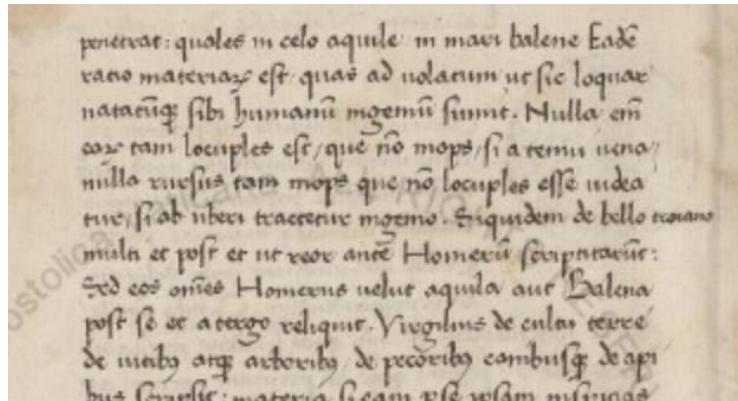 penetrat: quales in celo aquile in mari balene Eadē
ratio materiaꝝ est/ quas ad uolatum ut sic loquar
natatūqꝫ sibi humanū ingeniū sumit. Nulla em̄
eaꝝ tam locuples est/ que nō inops/ si a tenui uena/
nulla rursus tam inops que nō locuples esse uidea
tur/ si ab uberi tractetur ingenio. Siquidem de bello troiano
multi et post et ut reor ante Homerū scriptitarūt:
Sed eos om̄es Homerus uelut aquila aut Balena
post se et a tergo reliquit. Virgilius de cultu terre
de uitibꝫ atqꝫ arboribꝫ, de pecoribꝫ canibusqꝫ de api
bus scripsit: materia si eam per se ipsam inspicias